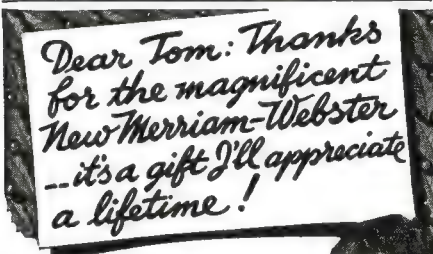 Dear Tom: Thanks
for the magnificent
New Merriam-Webster
--it's a gift I'll appreciate
a lifetime!